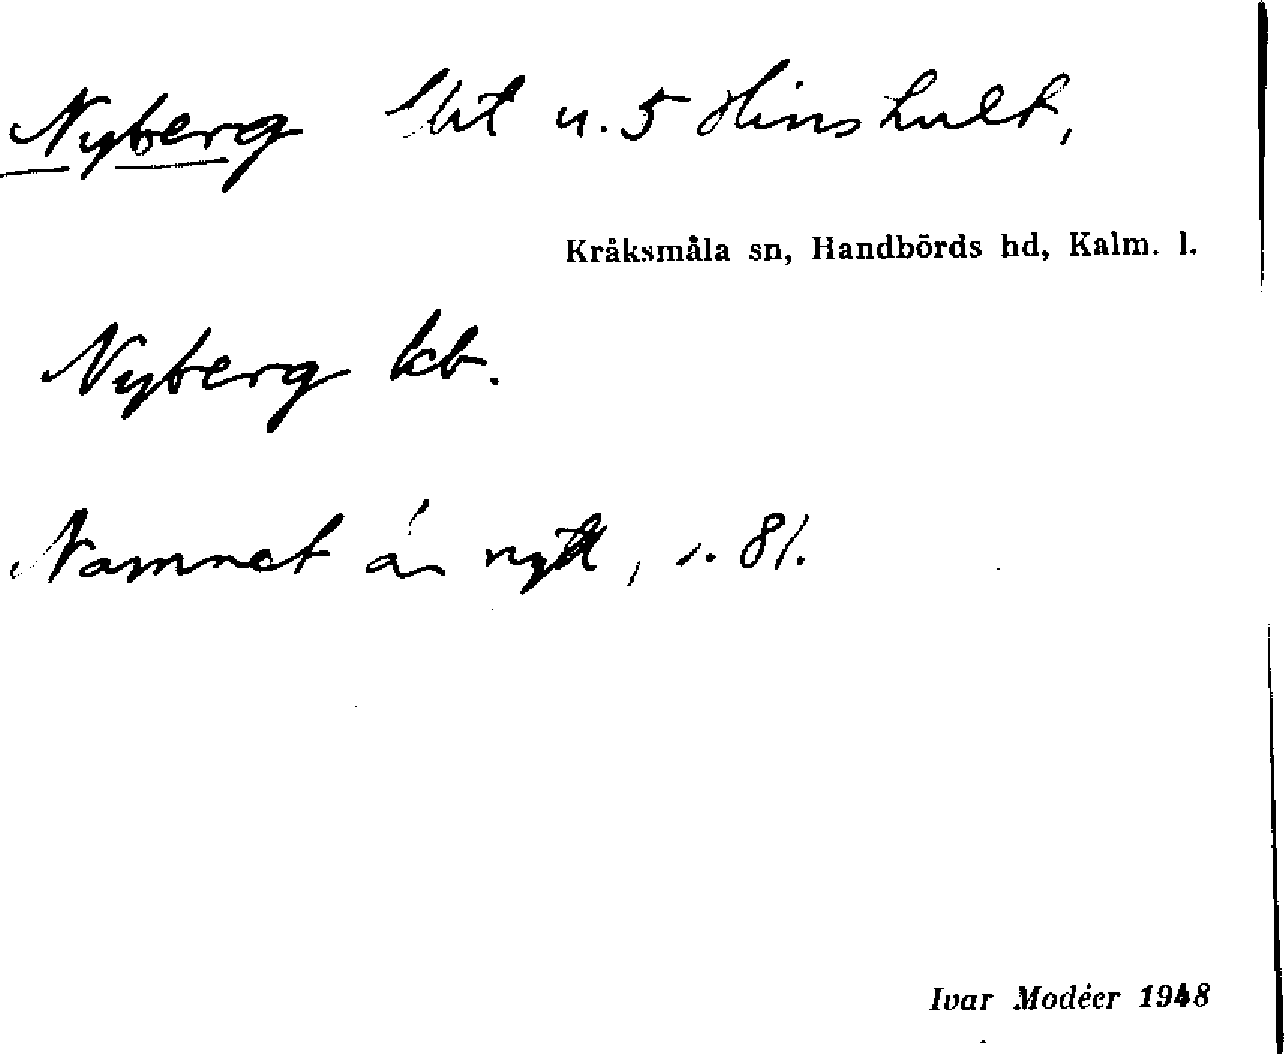 Nyberg lht u. 5 Hinshult,
Kråksmåla sn, Handbörds hd, Kalm. l.
Nyberg kb.
Namnet är nytt, s. 81.
Ivar Modéer 1948